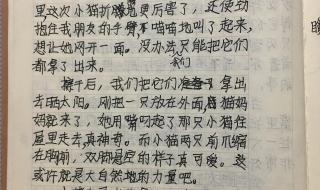 里这次小猫折腾更厉害了，还使劲
抱住我朋友的手臂不喵喵地叫了起来，
想让她网开一面。没办法只能把它们
都拿了出来。
擦干后，我们把它们拿出
去晒太阳。刚把一只放在外面，猫妈
妈就来了，她用嘴叼起了那只小猫在
屋里走去，真神奇。而小猫两只前爪缩
在胸前，双脚悬空的样子真可爱。这
或许就是大自然地的力量吧。